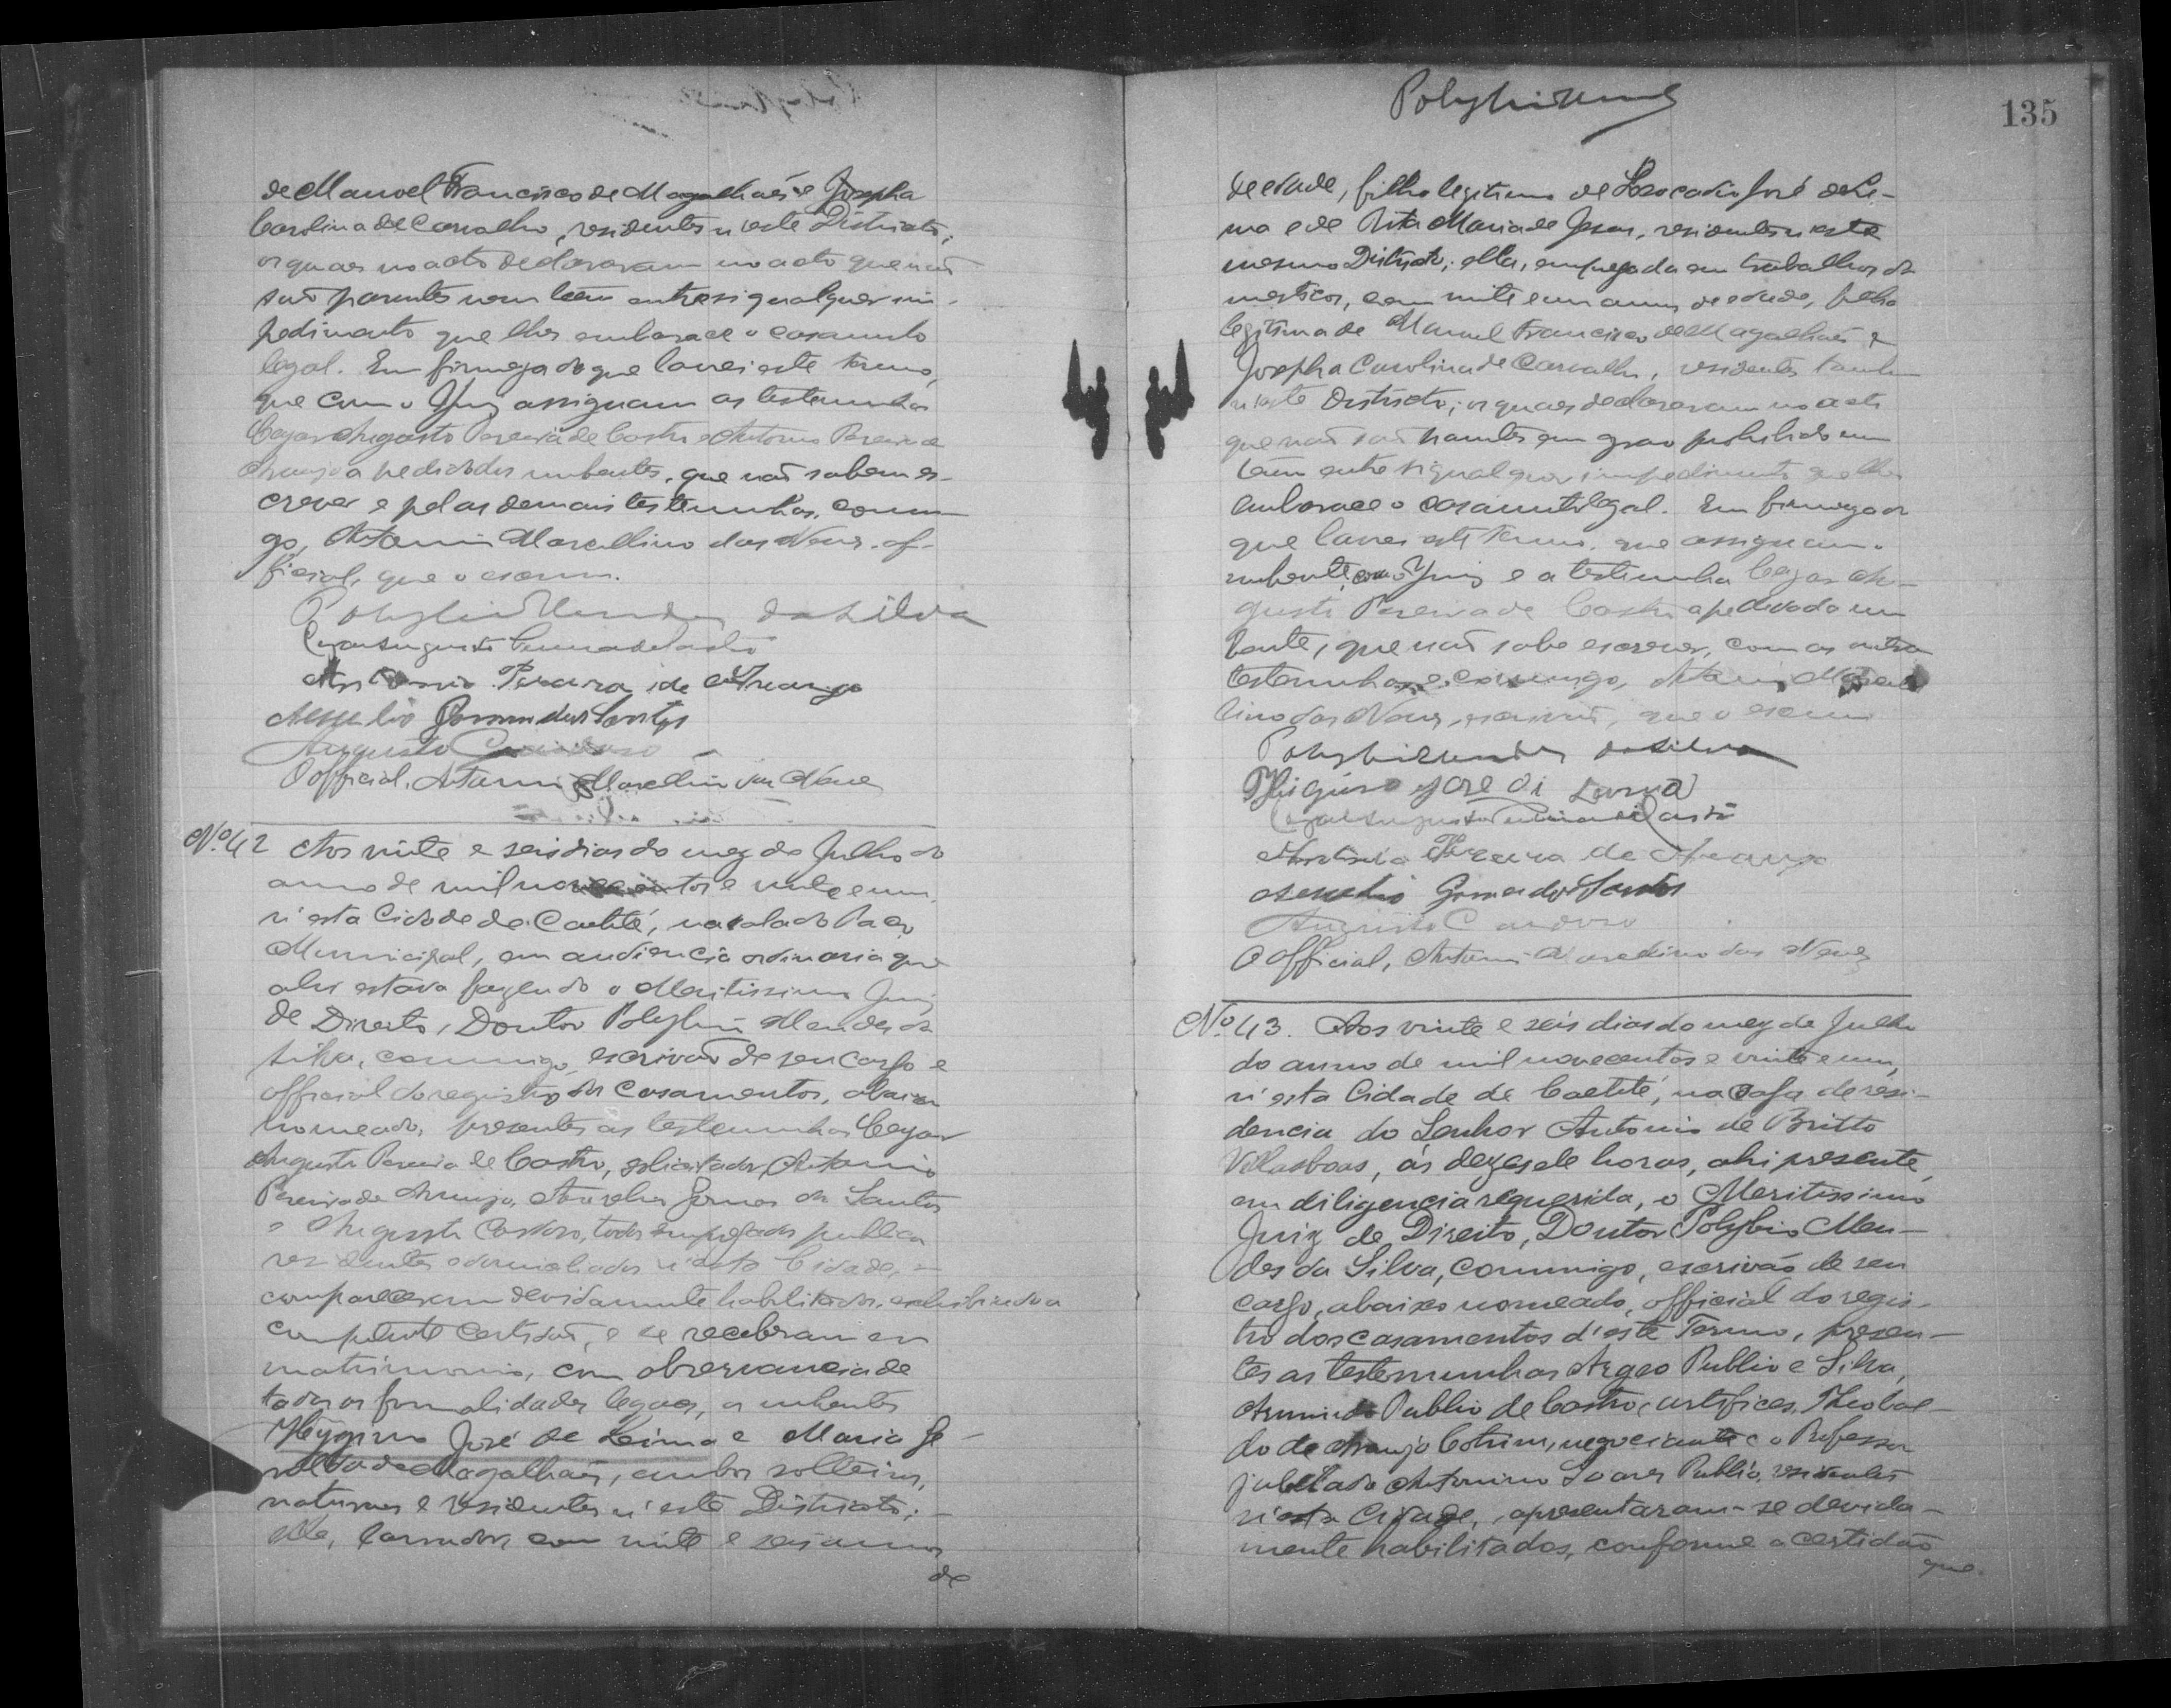 de Manoel Francisco de Magalhães e Josepha
Carolina de Carvalho, residentes n'este Districto;
os quaes no acto declararam no acto que não
são parentes nem têem entre si qualquer im-
pedimento que lhes embarace o casamento
legal. Em firmeza do que lavrei este termo,
que com o Juiz assignam as testemunhas
Cezar Augusto Pereira de Castro e Antonio Pereira de
Araujo a pedido dos nubentes, que não sabem es-
crever e pelas demais testemunhas, commi-
go, Antonio Marcellino das Neves, of-
ficial, que o escrevi.
Polybio Mendes da Silva
Cezar Augusto Pereira de Castro
Antonio Pereira de Araujo
Aurelio Gomes dos Santos
Augusto Cardoso
O official, Antonio Marcellino das Neves
Nº 42 Aos vinte e seis dias do mez de Julho do
anno de mil novecentos e vinte e um,
n'esta Cidade de Caetité, na sala do Paço
Municipal, em audiencia ordinaria que
ahi estava fazendo o Meritissimo Juiz
de Direito, Doutor Polybio Mendes da
Silva, commigo, escrivão de seu cargo e
official do registro dos casamentos, abaixo
nomeado, presentes as testemunhas Cezar
Augusto Pereira de Castro, solicitador, Antonio
Pereira de Araujo, Aurelio Gomes dos Santos
e Augusto Cardoso, todos empregados publicos
residentes e domiciliados n'esta Cidade,
compareceram devidamente habilitados, exhibindo a
competente certidão, e se receberam em
matrimonio, com observancia de
todas as formalidades legaes, os nubentes
Hygino José de Lima e Maria
de Magalhães, ambos solteiros,
naturaes e residentes n'este Districto;
elle, lavrador, com vinte e seis annos
de
Polybio Mendes
135
de edade, filho legitimo de Leocadio José de Li-
ma e de Rita Maria de Jesus, residentes n'este
mesmo Districto; ella, empregada em trabalhos do-
mesticos, com vinte e um annos de edade, filha
legitima de Manoel Francisco de Magalhães e
Josepha Carolina de Carvalho, residentes tambem
n'este Districto; os quaes declararam no acto
que não são parentes em grao prohibido nem
têem entre si qualquer impedimento que lhes
embarace o casamento legal. Em firmeza do
que lavrei este termo, que assignam o
nubente, com o Juiz e a testemunha Cezar Au-
gusto Pereira de Castro a pedido da nu-
bente, que não sabe escrever, com as outras
testemunhas e commigo, Antonio Marcel-
lino das Neves, escrivão, que o escrevi
Polybio Mendes da Silva
Higino José di Lima
Cezar Augusto Pereira de Castro
Antonio Pereira de Araujo
Aurelio Gomes dos Santos
Augusto Cardoso
O official, Antonio Marcellino das Neves
Nº 43. Aos vinte e seis dias do mez de Julho
do anno de mil novecentos e vinte e um,
n'esta Cidade de Caetité, na casa de resi-
dencia do Senhor Antonio de Britto
Villasboas, ás dezesete horas, ahi presente,
em diligencia requerida, o Meritissimo
Juiz de Direito, Doutor Polybio Men-
des da Silva, commigo, escrivão de seu
cargo, abaixo nomeado, official do regis-
tro dos casamentos d'este Termo, presen-
tes as testemunhas Argeo Publio e Silva,
Armindo Publio de Castro, artifices, Theobal-
do de Araujo Cotrim, negociante e o Professor
jubilado Antonino Soares Publio, residentes
n'esta Cidade, apresentaram-se devida-
mente habilitados, conforme a certidão
que